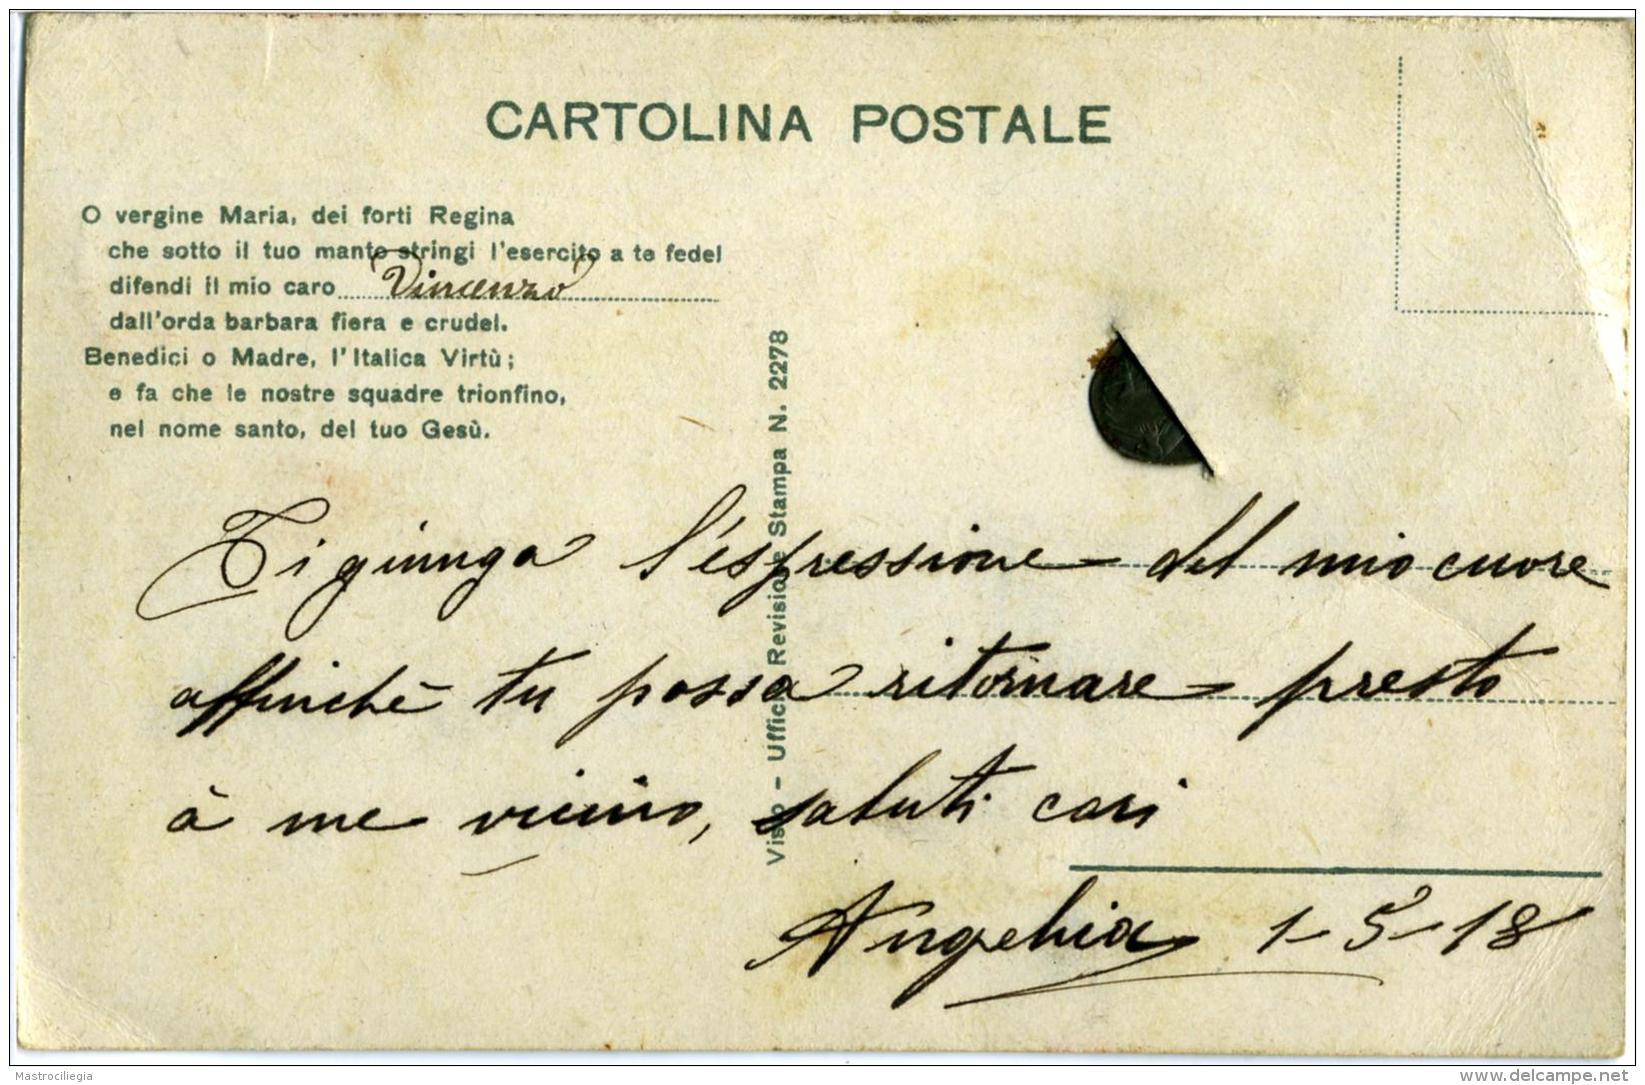 CARTOLINA POSTALE
O vergine Maria, dei forti Regina
che sotto il tuo manto stringi l'esercito a te fedel
difendi il mio caro Vincenzo
dall'orda barbara fiera e crudel.
Benedici o Madre, l'Italica Virtù;
e fa che le nostre squadre trionfino,
nel nome santo, del tuo Gesù.
Visto - Ufficio Revisione Stampa N. 2278
Ti giunga l'espressione del mio cuore
affinchè tu possa ritornare presto
à me vicino, saluti cari
1-5-18
Mastrociliegia
www.delcampe.net